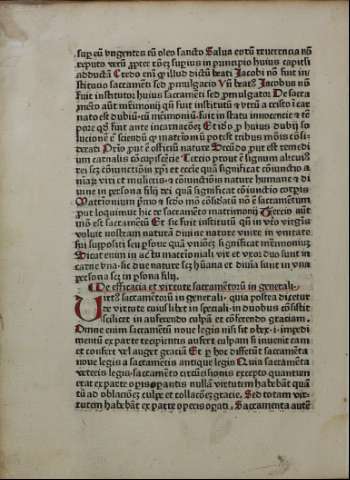 sup eū vngentes eū oleo sancto Salua eoꝝ reuerencia nō
reputo verū ꝓpter rōnez supius in principio huius capituli
adductā Credo em̄ ꝙ illud dictū beati Jacobi nō fuit in⸗
stitucio sacramēti sed ꝓmulgatio Vn̄ beatꝰ Jacobus nō
fuit institutor huius sacramēti sed ꝓmulgator De sacra
mēto aūt mr̄imonij qn̄ fuit institutū ⁊ vtrū a cristo icar
nato est dubiū cū mr̄imoniū fuit in statu innocencie ⁊ tē
pore qd̄ fuit ante incarnacōnez Et iō ꝓ huius dubij so
lucionē ē sciendū ꝙ matrimoniū potest tribus modis cōsi⸗
derari Prīo put ē officiū nature Secūdo put est remedi
um carnalis cōcupiscēcie Tercio prout ē signum alicuiꝰ
rei scz cōiunctiōis xp̄i et ecclie quā significat cōiunctio a
niaꝝ viri et mulieris ⁊ cōiunctiōis nature humane ⁊ di
uine in persona filij dei quā significat cōiunctio corpis
Matrimoniū prīo ⁊ scd̄o mō cōsideratū nō ē sacramētum
put loquimur hic de sacramēto matrimonij Tercio aūt
mō est sacramētū Et sic fuit institutū qn̄ in vtero virgīs
voluit nostram naturā diuine nature vnire in vnitate
sui suppositi seu psone quā vnionē significat mr̄imoniuz
Sicut enim in actu matrimoniali vir et vxor duo sunt in
carne vna sic due nature scz hūana et diuina sunt in vna
persona scz in psona filij
De efficacia et virtute sacramētoꝝ in generali
Virtꝰ sacramētoꝝ in generali quia postea dicetur
de virtute cuiuslibet in spēali in duobus cōsistit
scilicet in auferendo culpā et cōferendo graciam
Omne enim sacramētū noue legis nisi sit obex ⸗i⸗ impedi
mētū ex parte recipientis aufert culpam si inuenit eam
et confert vel auget graciā Et ꝑ hoc differūt sacramēta
noue legis a sacramētis antique legis Quia sacramēta
veteris legis sacramēto circūcisionis excepto quantum
erat ex parte operis operantis nullā virtutem habebāt quā
tū ad oblacōnez culpe et collacōnez gracie Sed totam vir⸗
tutem habebāt ex parte operis operati Sacramenta autē